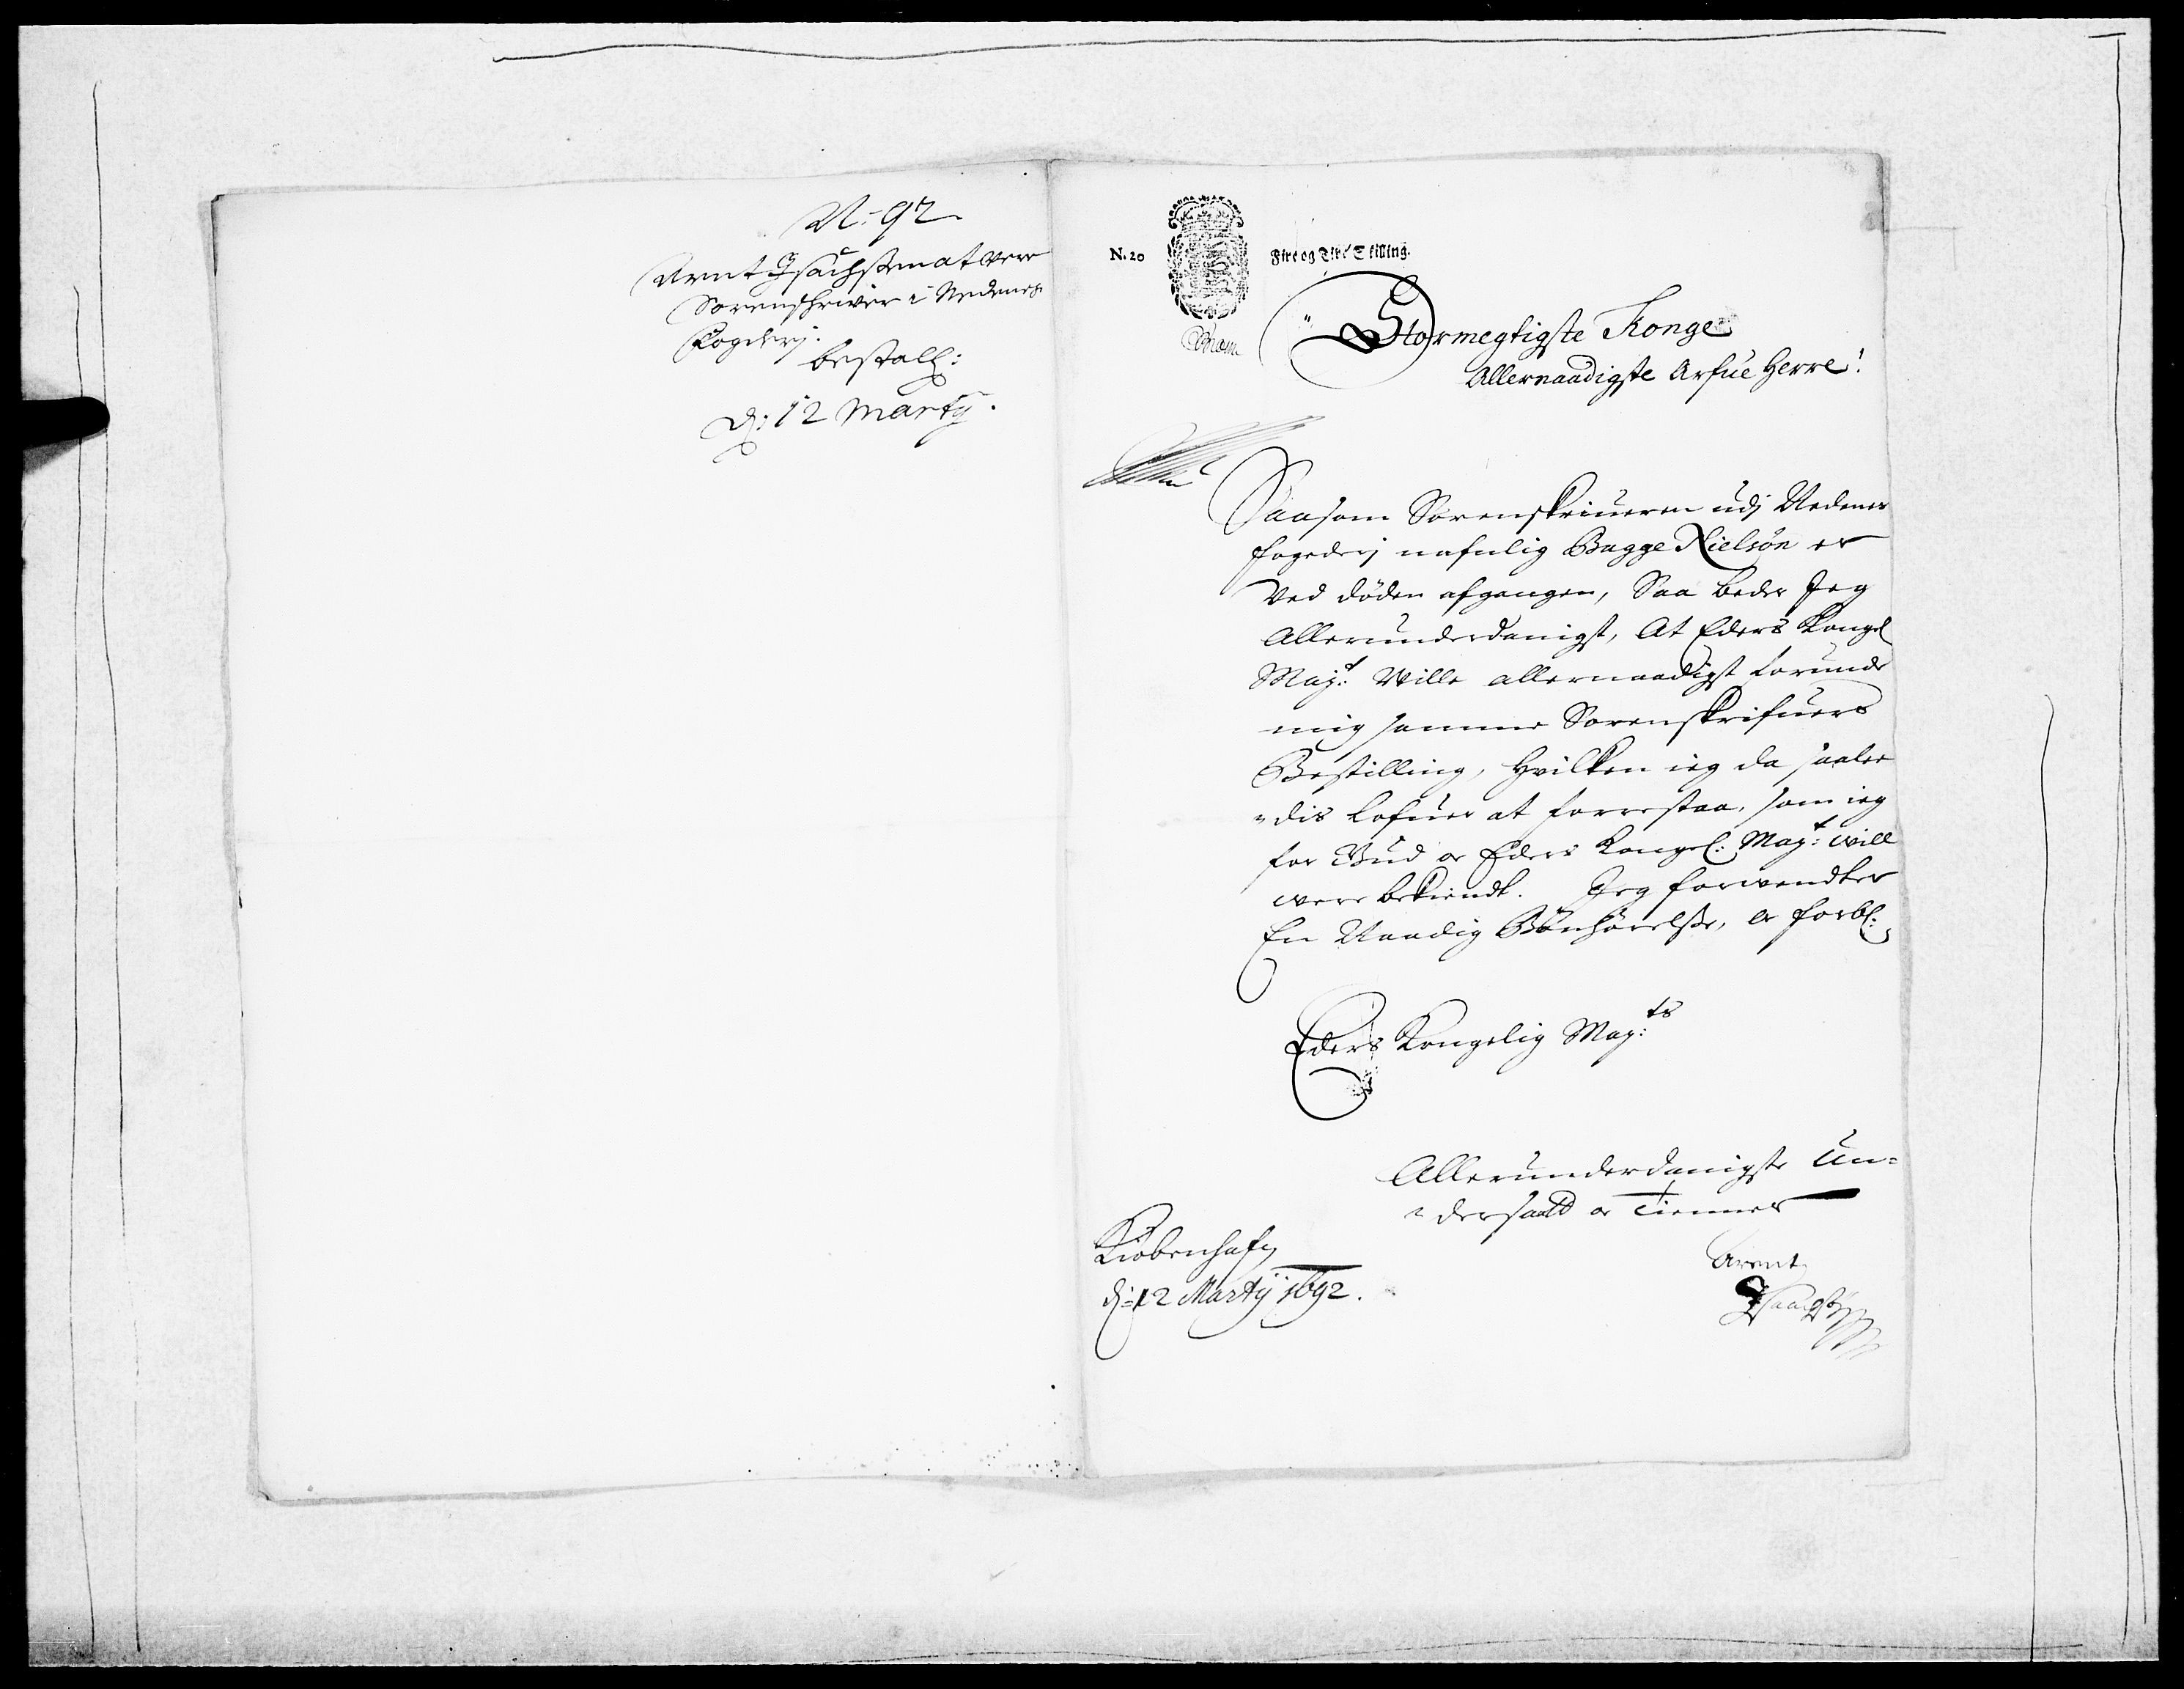 N: 92
Arent Isachsen at være
Sorenschriver i Nedenes
Fogderj.
bestall:
d: 12 Martij.
N. 20
Fire og Tive Skilling.
Stormegtigste Konge
Allernaadigste Arfue Herre!
Saasom Sorenskriueren udj Nedenes
fogderj nafnlig Bagge Nielsøn er
Ved døden afgangen, Saa beder Jeg
Allerunderdanigst, At Eders Kongel
Maj:t Wille allernaadigst forunde
mig samme Sorenskrifuers
Bestilling, Hvilken ieg da saale
=dis lofuer at forrestaa, som ieg
for Gud oc Eders Kongel: May:t will
were bekiendt. Jeg forwendter
En Naadig Bønhørelsse, oc forbl:
Eders Kongelig May:ts
Allerunderdanigste Un=
=dersaatt oc Tienner
Kiøbenhafn
d: 12 Martij 1692.
Arent
Isaachsen